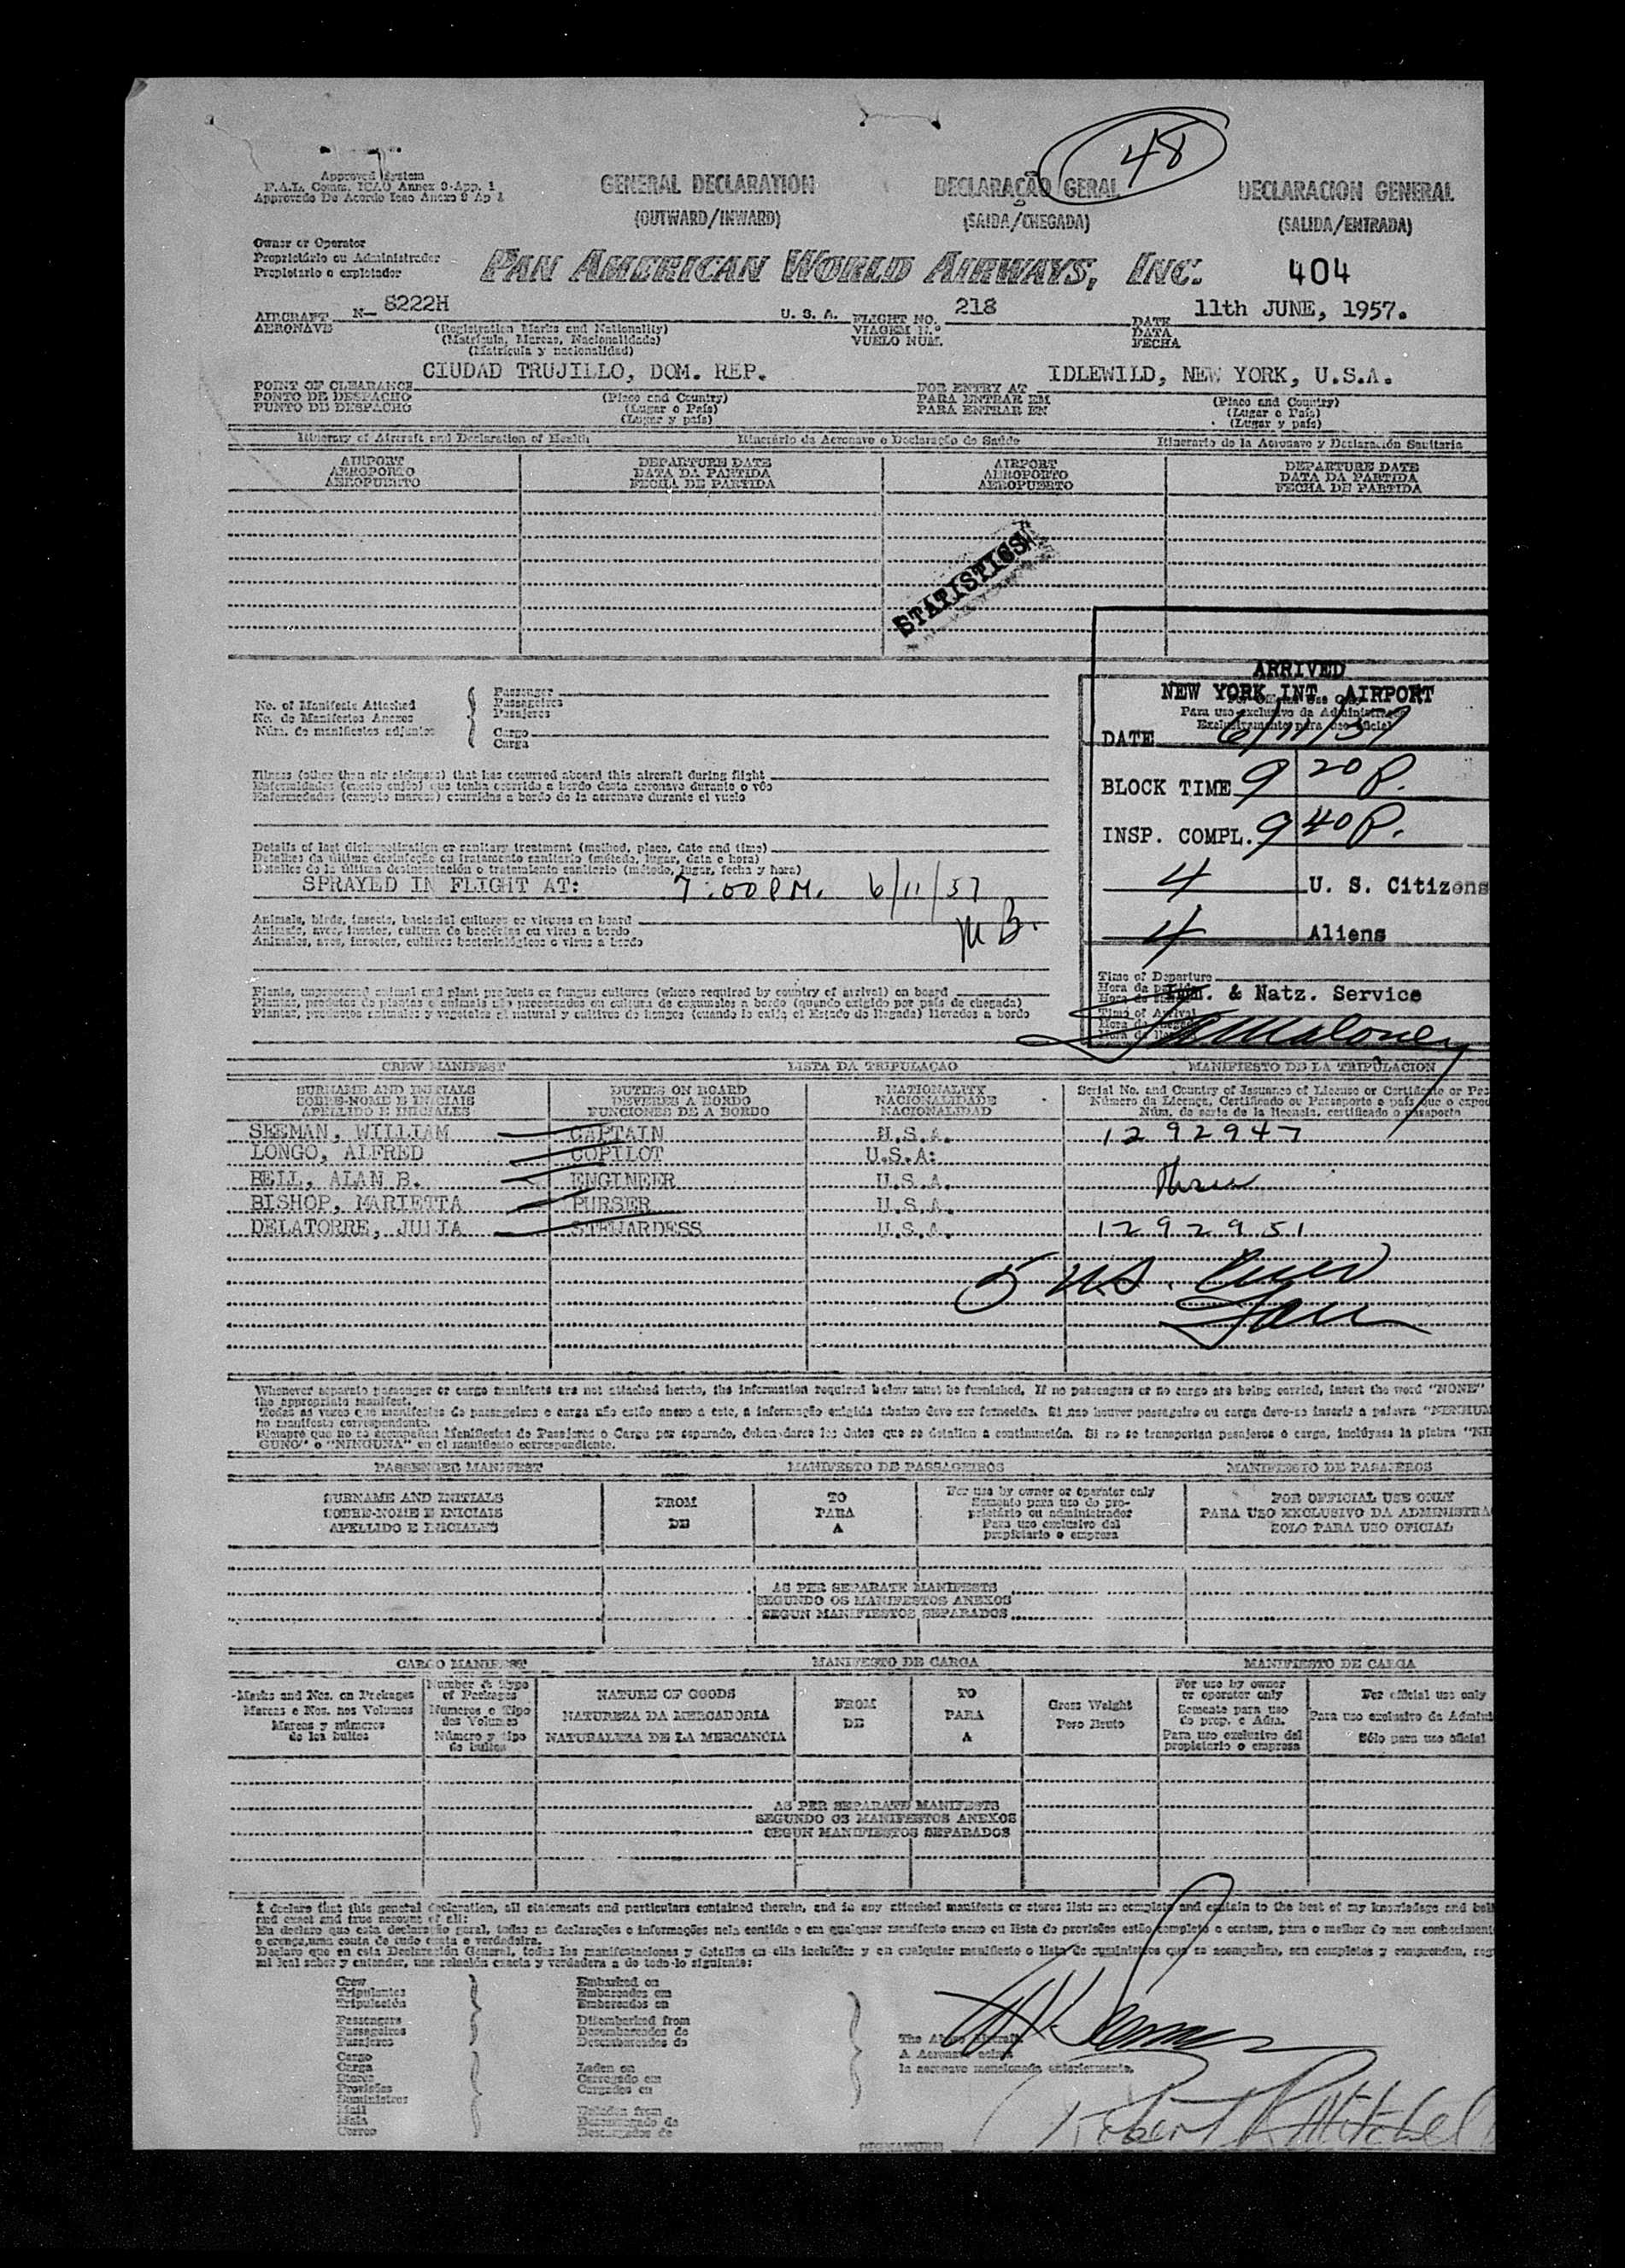 48
Approved System
F.A.L. Comm. ICAO Annex 9-App. 1
Approvado De Acordo Icao Anexo 9 Ap 1
GENERAL DECLARATION
(OUTWARD/INWARD)
DECLARAÇÃO GERAL
(SAIDA/CHEGADA)
DECLARACION GENERAL
(SALIDA/ENTRADA)
Owner or Operator
Proprietário ou Administrador
Propietario o explotador
PAN AMERICAN WORLD AIRWAYS, INC.
404
AIRCRAFT N- 8222H U. S. A. FLIGHT NO. 218 DATE 11th JUNE, 1957.
AERONAVE (Registration Marks and Nationality) VIAGEM N.º DATA
(Matrícula, Marcas, Nacionalidade) VUELO NUM. FECHA
(Matrícula y nacionalidad)
CIUDAD TRUJILLO, DOM. REP. IDLEWILD, NEW YORK, U.S.A.
POINT OF CLEARANCE FOR ENTRY AT
PONTO DE DESPACHO (Place and Country) PARA ENTRAR EM (Place and Country)
PUNTO DE DESPACHO (Lugar o País) PARA ENTRAR EN (Lugar o País)
(Lugar y país) (Lugar y país)
Itinerary of Aircraft and Declaration of Health Itinerário da Aeronave e Declaração de Saúde Itinerario de la Aeronave y Declaración Sanitaria
AIRPORT DEPARTURE DATE AIRPORT DEPARTURE DATE
AEROPORTO DATA DA PARTIDA AEROPORTO DATA DA PARTIDA
AEROPUERTO FECHA DE PARTIDA AEROPUERTO FECHA DE PARTIDA
STATISTICS
No. of Manifests Attached
No. de Manifestos Anexos
Núm. de manifiestos adjuntos
Passenger
Passageiros
Pasajeros
Cargo
Carga
ARRIVED
NEW YORK INT. AIRPORT
Para uso exclusivo da Administração
Exclusivamente para uso oficial
DATE 6/11/57
BLOCK TIME 9 20 P.
INSP. COMPL. 9 40 P.
4 U. S. Citizens
4 Aliens
Time of Departure
Imm. & Natz. Service
Time of Arrival
Illness (other than air sickness) that has occurred aboard this aircraft during flight
Enfermidades (exceto enjôo) que tenha ocorrido a bordo desta aeronave durante o vôo
Enfermedades (excepto mareos) ocurridas a bordo de la aeronave durante el vuelo
Details of last disinsectization or sanitary treatment (method, place, date and time)
Detalhes da última desinfeção ou tratamento sanitario (método, lugar, data e hora)
Detalles de la última desinsectación o tratamiento sanitario (método, lugar, fecha y hora)
SPRAYED IN FLIGHT AT: 7:00 P.M. 6/11/57
M B.
Animals, birds, insects, bacterial cultures or viruses on board
Animais, aves, insetos, cultura de bactérias ou virus a bordo
Animales, aves, insectos, cultivos bacteriológicos o virus a bordo
Plants, unprocessed animal and plant products or fungus cultures (where required by country of arrival) on board
Plantas, produtos de plantas e animais não processados ou cultura de cogumelos a bordo (quando exigido por país de chegada)
Plantas, productos animales y vegetales al natural y cultivos de hongos (cuando lo exija el Estado de llegada) llevados a bordo
CREW MANIFEST LISTA DA TRIPULAÇÃO MANIFIESTO DE LA TRIPULACION
SURNAME AND INITIALS DUTIES ON BOARD NATIONALITY Serial No. and Country of Issuance of License or Certificate or Pas
SOBRE-NOME E INICIAIS DEVERES A BORDO NACIONALIDADE Número da Licença, Certificado ou Passaporte e país que o exped
APELLIDO E INICIALES FUNCIONES DE A BORDO NACIONALIDAD Núm. de serie de la licencia, certificado o pasaporte
SEEMAN, WILLIAM CAPTAIN U.S.A. 1292947
LONGO, ALFRED COPILOT U.S.A:
BELL, ALAN B. ENGINEER U.S.A.
BISHOP, MARIETTA PURSER U.S.A.
DELATORRE, JULIA STEWARDESS U.S.A. 1292951
5 U.S.
Whenever separate passenger or cargo manifests are not attached hereto, the information required below must be furnished. If no passengers or no cargo are being carried, insert the word "NONE"
the appropriate manifest.
Todas as vezes que manifestos de passageiros e carga não estão anexo a este, a informação exigida abaixo deve ser fornecida. Si nao houver passageiro ou carga deve-se inserir a palavra "NENHUM
no manifesto correspondente.
Siempre que no se acompañan Manifiestos de Pasajeros o Carga por separado, deben darse los datos que se detallan a continuación. Si no se transportan pasajeros o carga, inclúyase la plabra "NI
GUNO" o "NINGUNA" en el manifiesto correspondiente.
PASSENGER MANIFEST MANIFESTO DE PASSAGEIROS MANIFIESTO DE PASAJEROS
SURNAME AND INITIALS FROM TO For use by owner or operator only FOR OFFICIAL USE ONLY
SOBRE-NOME E INICIAIS DE PARA Somente para uso do proprietário ou administrador PARA USO EXCLUSIVO DA ADMINISTRA
APELLIDO E INICIALES A Para uso exclusivo del propietario o empresa SOLO PARA USO OFICIAL
AS PER SEPARATE MANIFESTS
SEGUNDO OS MANIFESTOS ANEXOS
SEGUN MANIFIESTOS SEPARADOS
CARGO MANIFEST MANIFESTO DE CARGA MANIFIESTO DE CARGA
Marks and Nos. on Packages Number & Type of Packages NATURE OF GOODS FROM TO Gross Weight For use by owner or operator only For official use only
Marcas e Nos. nos Volumes Numeros e Tipo dos Volumes NATUREZA DA MERCADORIA DE PARA Peso Bruto Somente para uso do prop. e Adm. Para uso exclusivo da Admini
Marcas y números de los bultos Número y tipo de bultos NATURALEZA DE LA MERCANCIA A Para uso exclusivo del propietario o empresa Sólo para uso oficial
AS PER SEPARATE MANIFESTS
SEGUNDO OS MANIFESTOS ANEXOS
SEGUN MANIFIESTOS SEPARADOS
I declare that this general declaration, all statements and particulars contained therein, and in any attached manifests or stores lists are complete and contain to the best of my knowledge and beli
and exact and true account of all:
Eu declaro que esta declaração geral, todas as declarações e informações nela contida e em qualquer manifesto anexo ou lista de provisões estão completo e contem, para o melhor do meu conhecimento
e crença, uma conta de tudo exata e verdadeira.
Declaro que en esta Declaración General, todas las manifestaciones y detalles en ella incluídos y en cualquier manifiesto o lista de suministros que se acompañen, son completos y comprenden, seg
mi leal saber y entender, una relación exacta y verdadera a de todo lo siguiente:
Crew
Tripulantes
Tripulación
Passengers
Passageiros
Pasajeros
Cargo
Carga
Stores
Provisões
Suministros
Mail
Mala
Correo
Embarked on
Embarcados em
Embarcados en
Disembarked from
Desembarcados de
Desembarcados de
Laden on
Carregado em
Cargados en
Unladen from
Descarregado de
Descargados de
The Above Aircraft
A Aeronave acima
la aeronave mencionada anteriormente.
SIGNATURE Robert R Mitchell